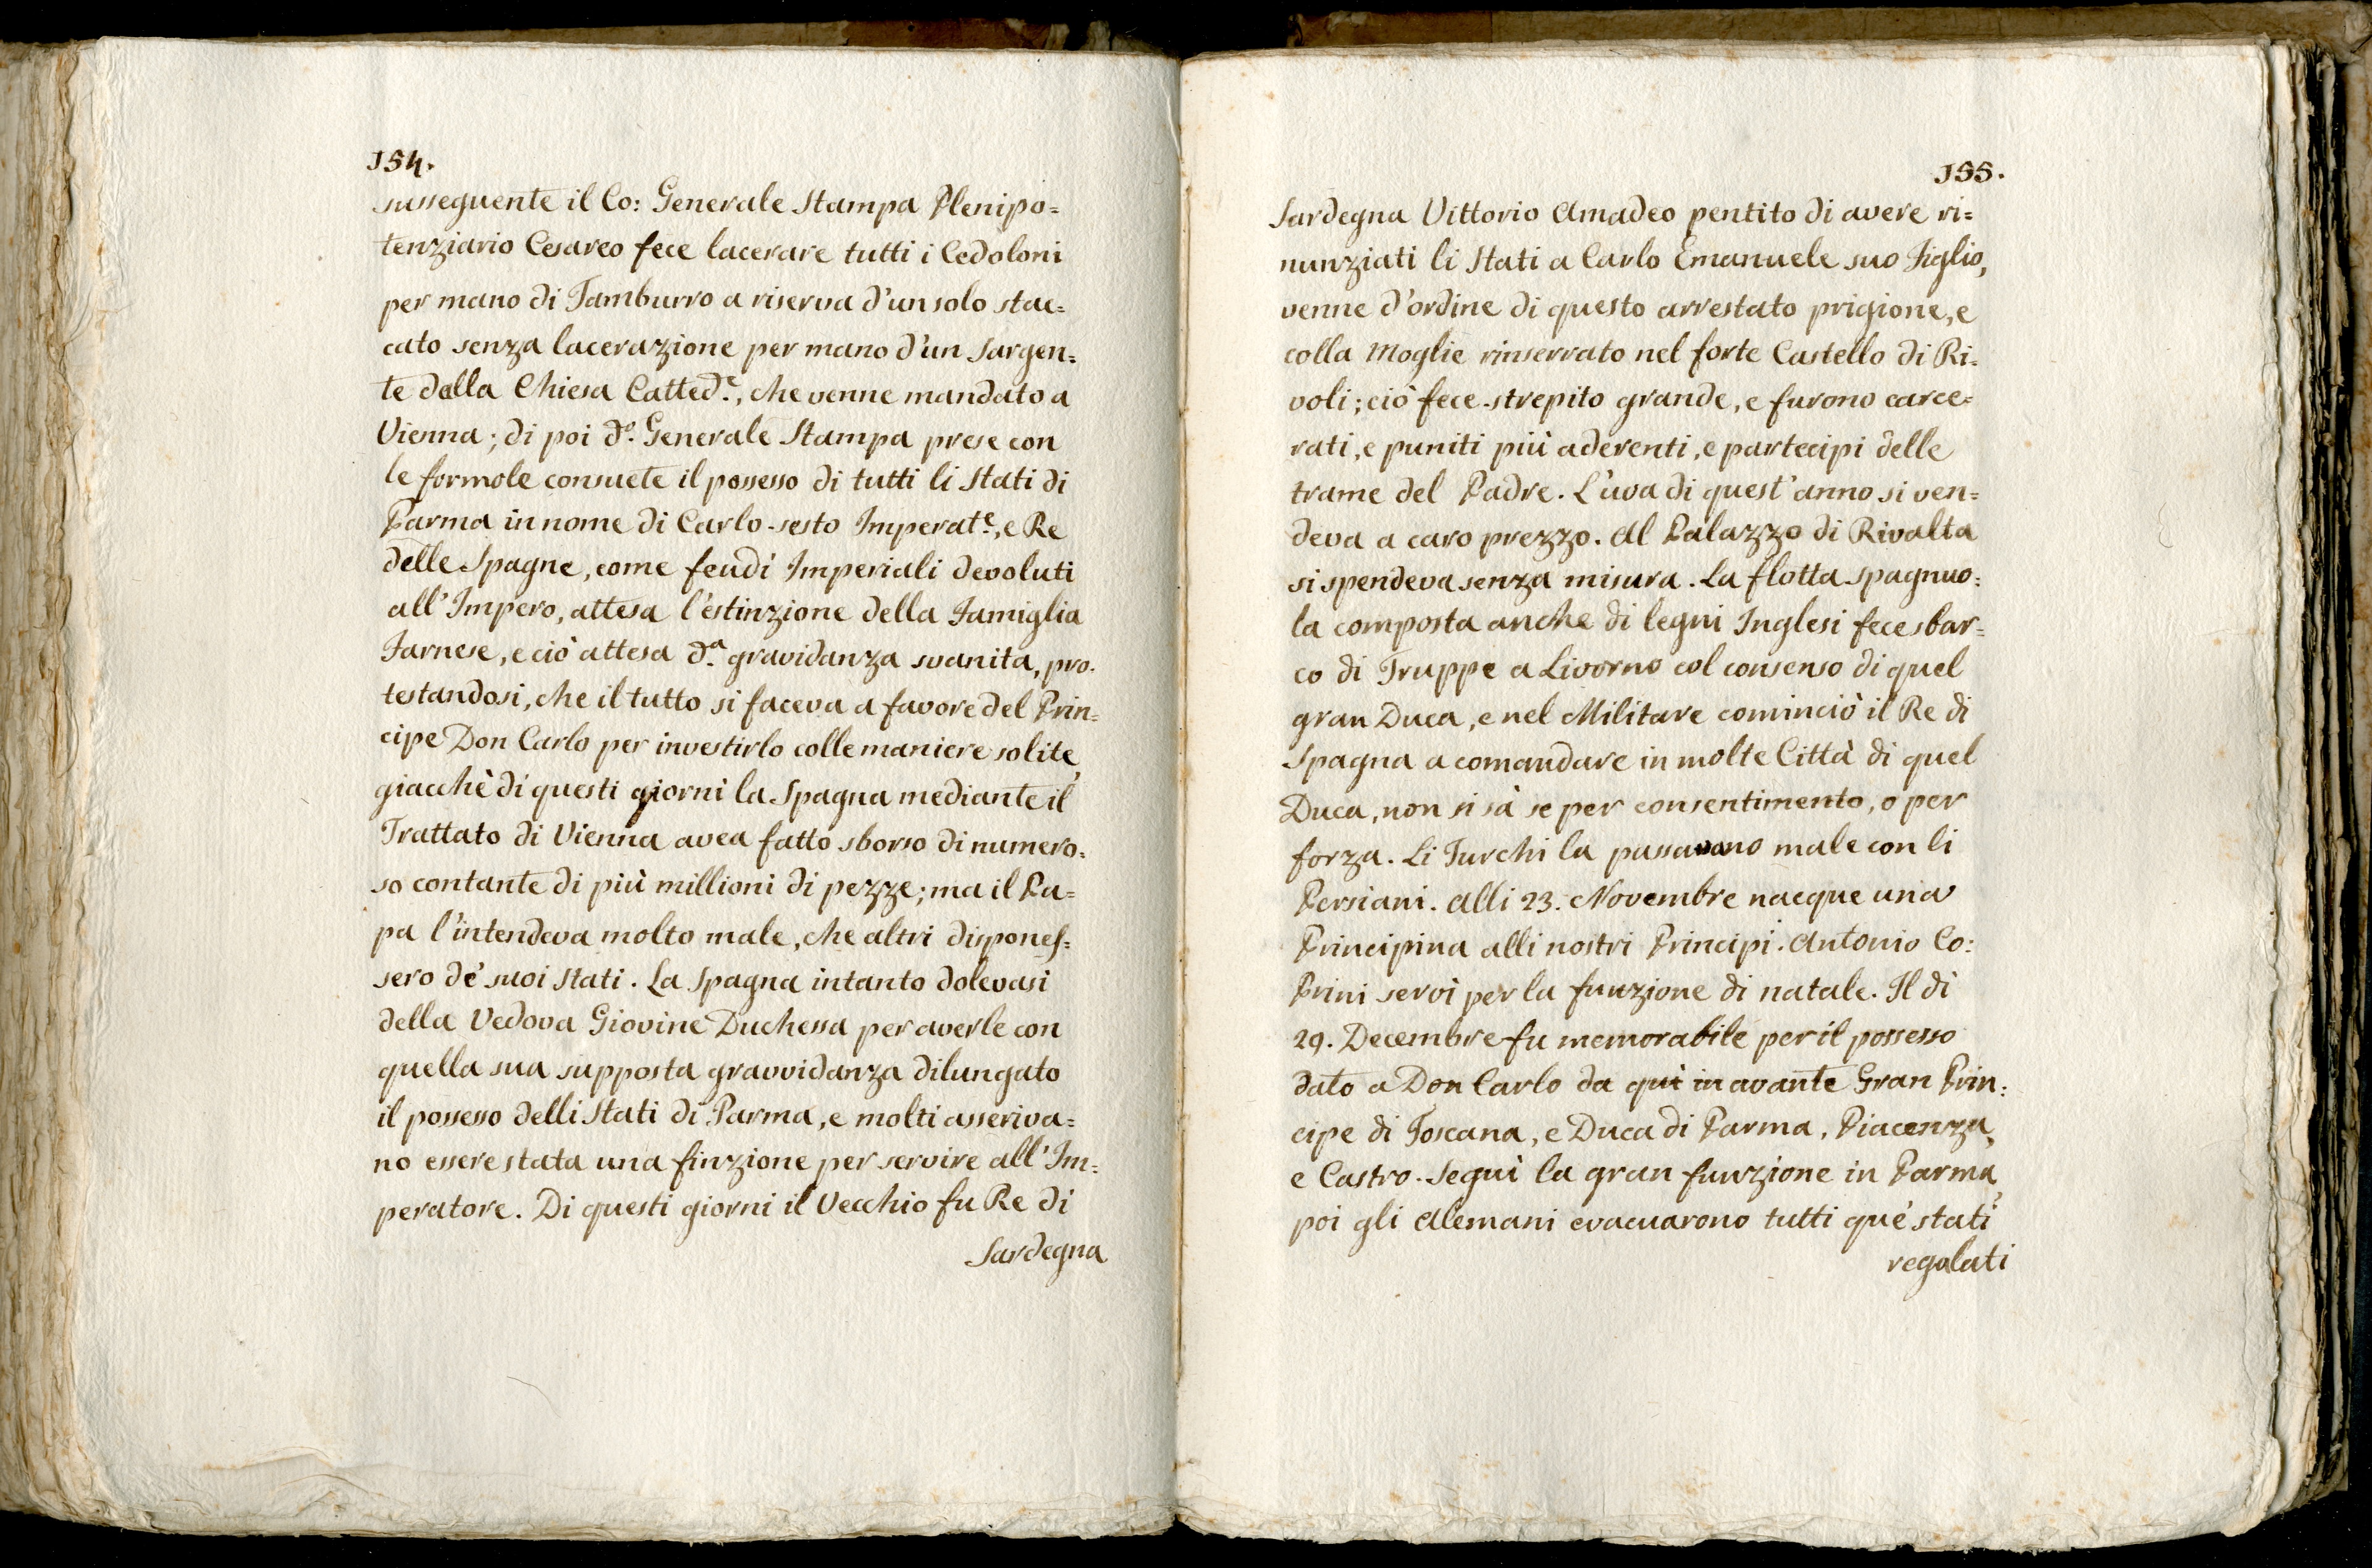 154.
susseguente il Co: Generale Stampa Plenipo=
tenziario Cesareo fece lacerare tutti i Cedoloni
per mano di Tamburro a riserva d'un solo stac=
cato senza lacerazione per mano d'un Sargen=
te dalla Chiesa Catted.e, che venne mandato a
Vienna; di poi d.o Generale Stampa prese con
le formole consuete il possesso di tutti li Stati di
Parma in nome di Carlo sesto Imperat.e, e Re
delle Spagne, come feudi Imperiali devoluti
all'Impero, attesa l'estinzione della Famiglia
Farnese, e ciò attesa d.a gravidanza svanita, pro=
testandosi, che il tutto si faceva a favore del Prin=
cipe Don Carlo per investirlo colle maniere solite,
giacchè di questi giorni la Spagna mediante il
Trattato di Vienna avea fatto sborso di numero=
so contante di più millioni di pezze; ma il Pa=
pa l'intendeva molto male, che altri dispones=
sero de' suoi stati. La Spagna intanto dolevasi
della Vedova Giovine Duchessa per averle con
quella sua supposta gravvidanza dilungato
il possesso delli Stati di Parma, e molti asseriva=
no essere stata una finzione per servire all'Im=
peratore. Di questi giorni il Vecchio fu Re di
Sardegna
155.
Sardegna Vittorio Amadeo pentito di avere ri=
nunziati li Stati a Carlo Emanuele suo Figlio,
venne d'ordine di questo arrestato prigione, e
colla Moglie rinserrato nel forte Castello di Ri=
voli; ciò fece strepito grande, e furono carce=
rati, e puniti più aderenti, e partecipi delle
trame del Padre. L'uva di quest'anno si ven=
deva a caro prezzo. Al Palazzo di Rivalta
si spendeva senza misura. La flotta spagnuo=
la composta anche di legni Inglesi fece sbar=
co di Truppe a Livorno col consenso di quel
gran Duca, e nel Militare cominciò il Re di
Spagna a comandare in molte Città di quel
Duca, non si sà se per consentimento, o per
forza. Li Turchi la passavano male con li
Persiani. Alli 23. Novembre nacque una
Principina alli nostri Principi. Antonio Co:
Prini servì per la funzione di natale. Il dì
29. Decembre fu memorabile per il possesso
dato a Don Carlo da quì in avante Gran Prin=
cipe di Toscana, e Duca di Parma, Piacenza,
e Castro. Seguì la gran funzione in Parma,
poi gli Alemani evacuarono tutti que' stati
regolati